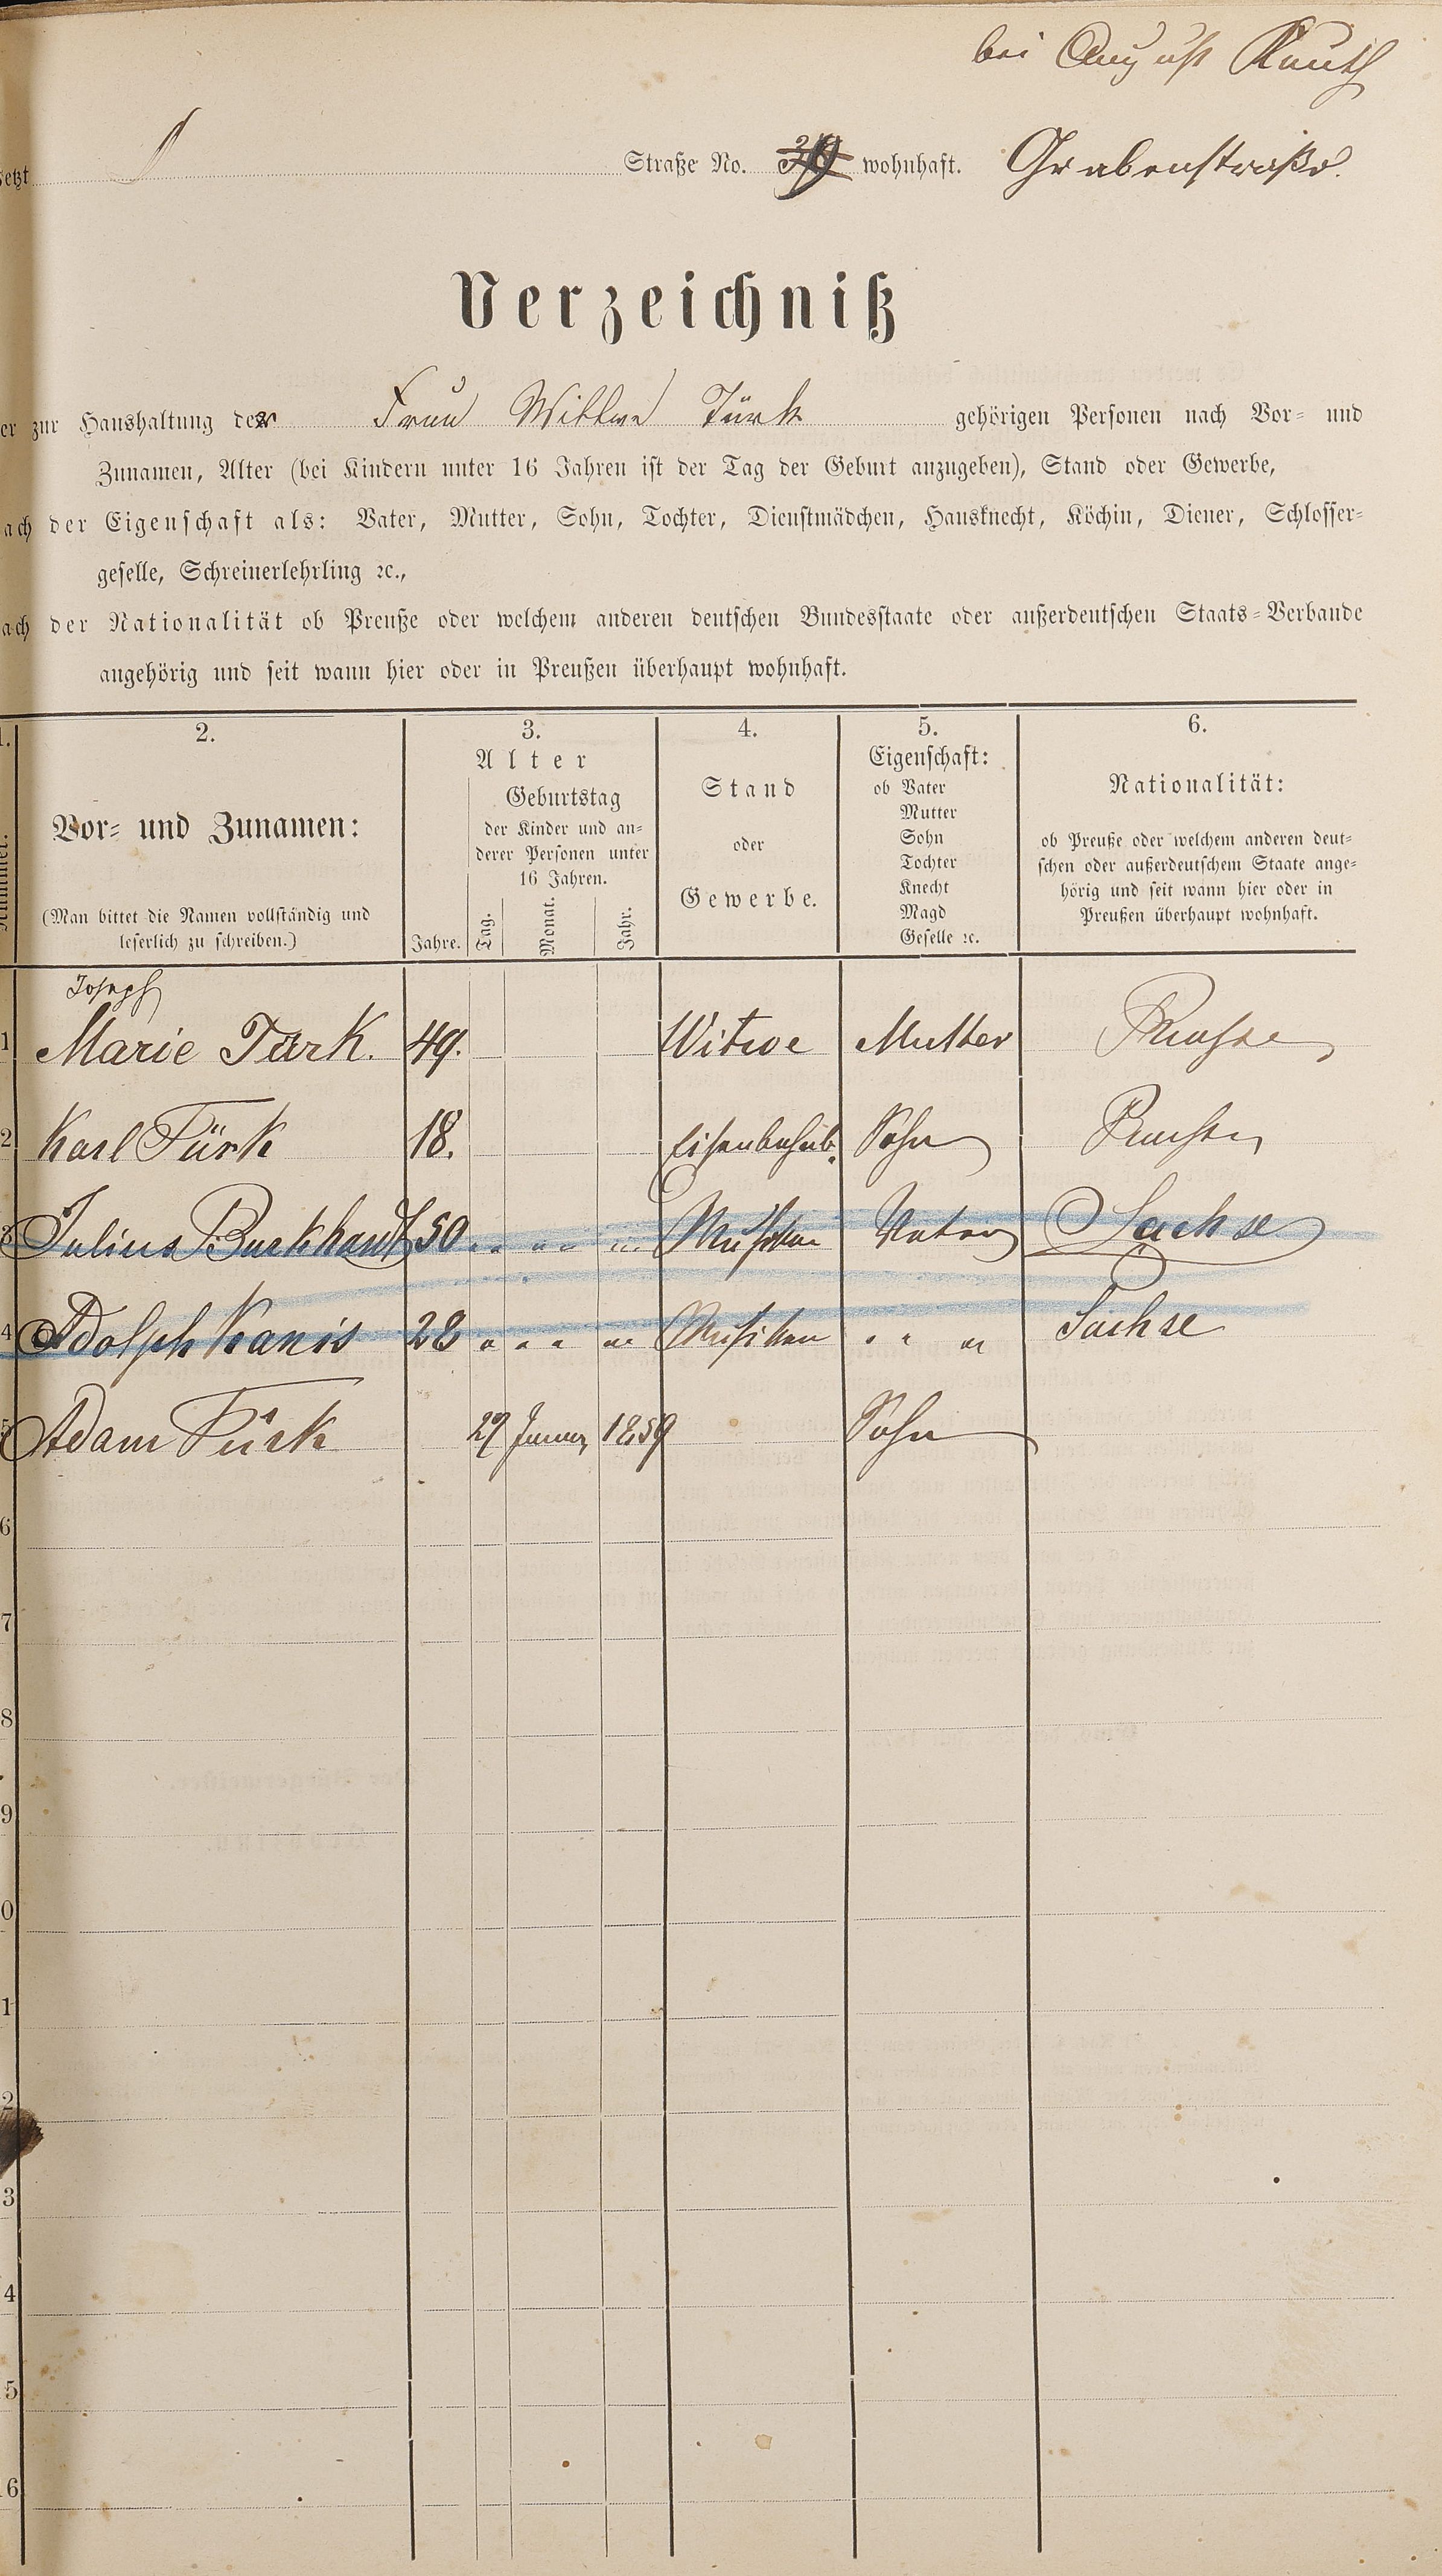 bei August Kauth
jetzt Straße No. wohnhaft. Grabenstraße.
Verzeichniß
er zur Haushaltung der Frau Wittwe Türk gehörigen Personen nach Vor- und
Zunamen, Alter (bei Kindern unter 16 Jahren ist der Tag der Geburt anzugeben), Stand oder Gewerbe,
ach der Eigenschaft als: Vater, Mutter, Sohn, Tochter, Dienstmädchen, Hausknecht, Köchin, Diener, Schlosser-
geselle, Schreinerlehrling ꝛc.,
ach der Nationalität ob Preuße oder welchem anderen deutschen Bundesstaate oder außerdeutschen Staats-Verbande
angehörig und seit wann hier oder in Preußen überhaupt wohnhaft.
1. 2. 3. 4. 5. 6.
Nummer.
Vor- und Zunamen:
(Man bittet die Namen vollständig und
leserlich zu schreiben.)
Alter
Jahre.
Geburtstag
der Kinder und an-
derer Personen unter
16 Jahren.
Tag. Monat. Jahr.
Stand
oder
Gewerbe.
Eigenschaft:
ob Vater
Mutter
Sohn
Tochter
Knecht
Magd
Geselle ꝛc.
Nationalität:
ob Preuße oder welchem anderen deut-
schen oder außerdeutschem Staate ange-
hörig und seit wann hier oder in
Preußen überhaupt wohnhaft.
Joseph
1 Marie Türk. 49. Witwe Mutter Preusse
2 Karl Türk 18. Eisenbahnb. Sohn Preusse
3 Julius Burkhardt 50 " " " " " " Musiker Vater Sachse
4 Adolph Kanis 28 " " " " Musiker " " " Sachse
5 Adam Türk 29 Januar 1859 Sohn
6
7
8
9
0
1
2
3
4
5
6